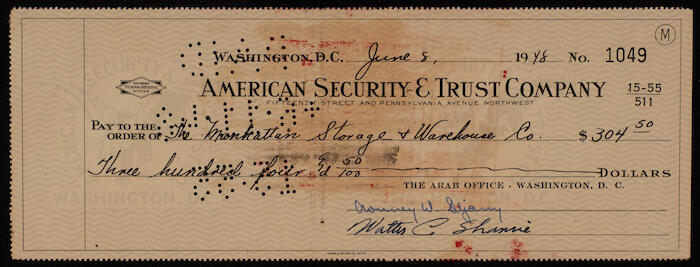 M
WASHINGTON, D.C. June 8, 1948 No. 1049
MEMBER FEDERAL RESERVE SYSTEM
AMERICAN SECURITY & TRUST COMPANY 15-55
511
FIFTEENTH STREET AND PENNSYLVANIA AVENUE NORTHWEST
PAY TO THE ORDER OF The Manhattan Storage & Warehouse Co. $304 50
Three hundred four & 50/100 DOLLARS
THE ARAB OFFICE - WASHINGTON, D. C.
W.
C.